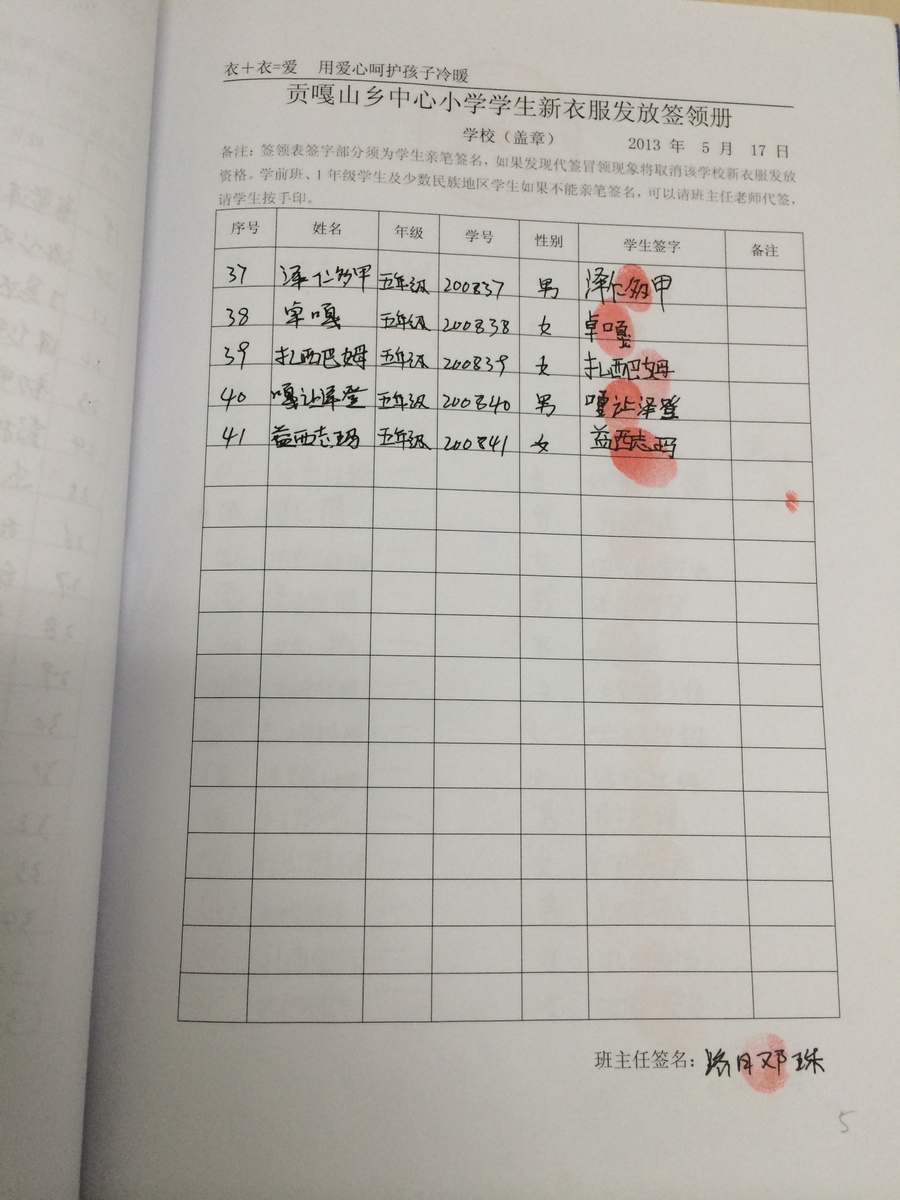 衣+衣=爱 用爱心呵护孩子冷暖
贡嘎山乡中心小学学生新衣服发放签领册
学校（盖章） 2013 年 5 月 17 日
备注：签领表签字部分须为学生亲笔签名，如果发现代签冒领现象将取消该学校新衣服发放
资格。学前班、1 年级学生及少数民族地区学生如果不能亲笔签名，可以请班主任老师代签，
请学生按手印。
序号 姓名 年级 学号 性别 学生签字 备注
37 泽仁多甲 五年级 200837 男 泽仁多甲
38 卓嘎 五年级 200838 女 卓嘎
39 扎西巴姆 五年级 200839 女 扎西巴姆
40 嘎让泽登 五年级 200840 男 嘎让泽登
41 益西志玛 五年级 200841 女 益西志玛
班主任签名：邓珠
5